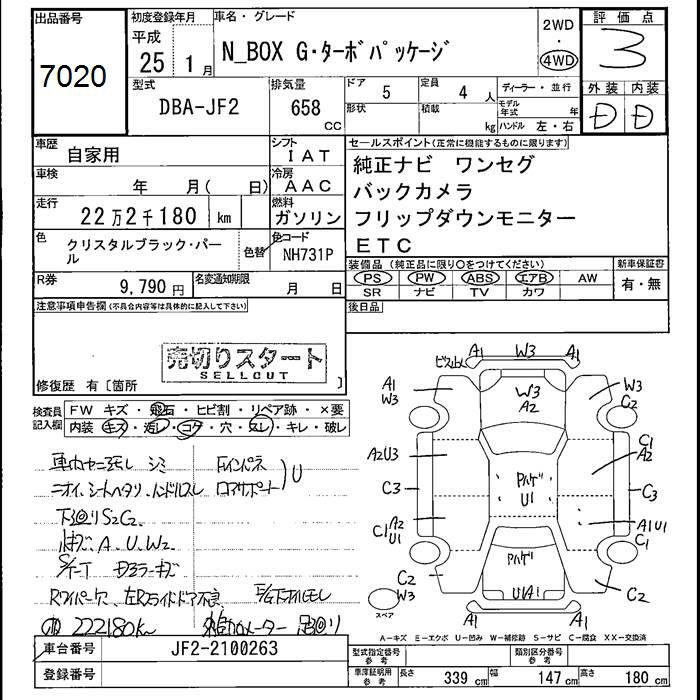 出品番号
7020
初度登録年月
平成
25 1 月
車名・グレード
N_BOX G・ターボパッケージ
2WD
・
4WD
評価点
3
型式
DBA-JF2
排気量
658
CC
ドア 5
定員 4 人
形状
積載 kg
ディーラー・並行
モデル年式 年
ハンドル 左・右
外装 内装
D D
車歴
自家用
シフト
IAT
車検
年 月( 日)
冷房
AAC
走行
22万2千180 km
燃料
ガソリン
色
クリスタルブラック・パール
色替
色コード
NH731P
R券
9,790 円
名変通知期限
月 日
セールスポイント(正常に機能するものに限ります)
純正ナビ ワンセグ
バックカメラ
フリップダウンモニター
ETC
装備品(純正品に限り○をつけてください)
PS PW ABS エアB AW
SR ナビ TV カワ
新車保証書
有・無
後日品
注意事項申告欄(不具合内容等は具体的に記入して下さい)
売切りスタート
SELLCUT
修復歴 有〔箇所 〕
検査員記入欄
FW キズ・飛石・ヒビ割・リペア跡・×要
内装 キズ・汚レ・コゲ・穴・スレ・キレ・破レ
シミ
U
下回りS2C2
キズ、A、U、W2
Rワイパー欠、左Rスライドドア不良、
222180km 下回り
A1 W3 A1
A1
W3
W3
A2
W3
C2
A2U3
C1
A2
C3
C3
U1
C1 A2
U1
A1U1
C1
C2
W3
U1A1
C2
スペア
A-キズ E-エクボ U-凹み W-補修跡 S-サビ C-腐食 XX-交換済
車台番号
JF2-2100263
登録番号
型式指定番号
参考
類別区分番号
参考
車庫証明用
参考
長さ 339 cm 幅 147 cm 高さ 180 cm